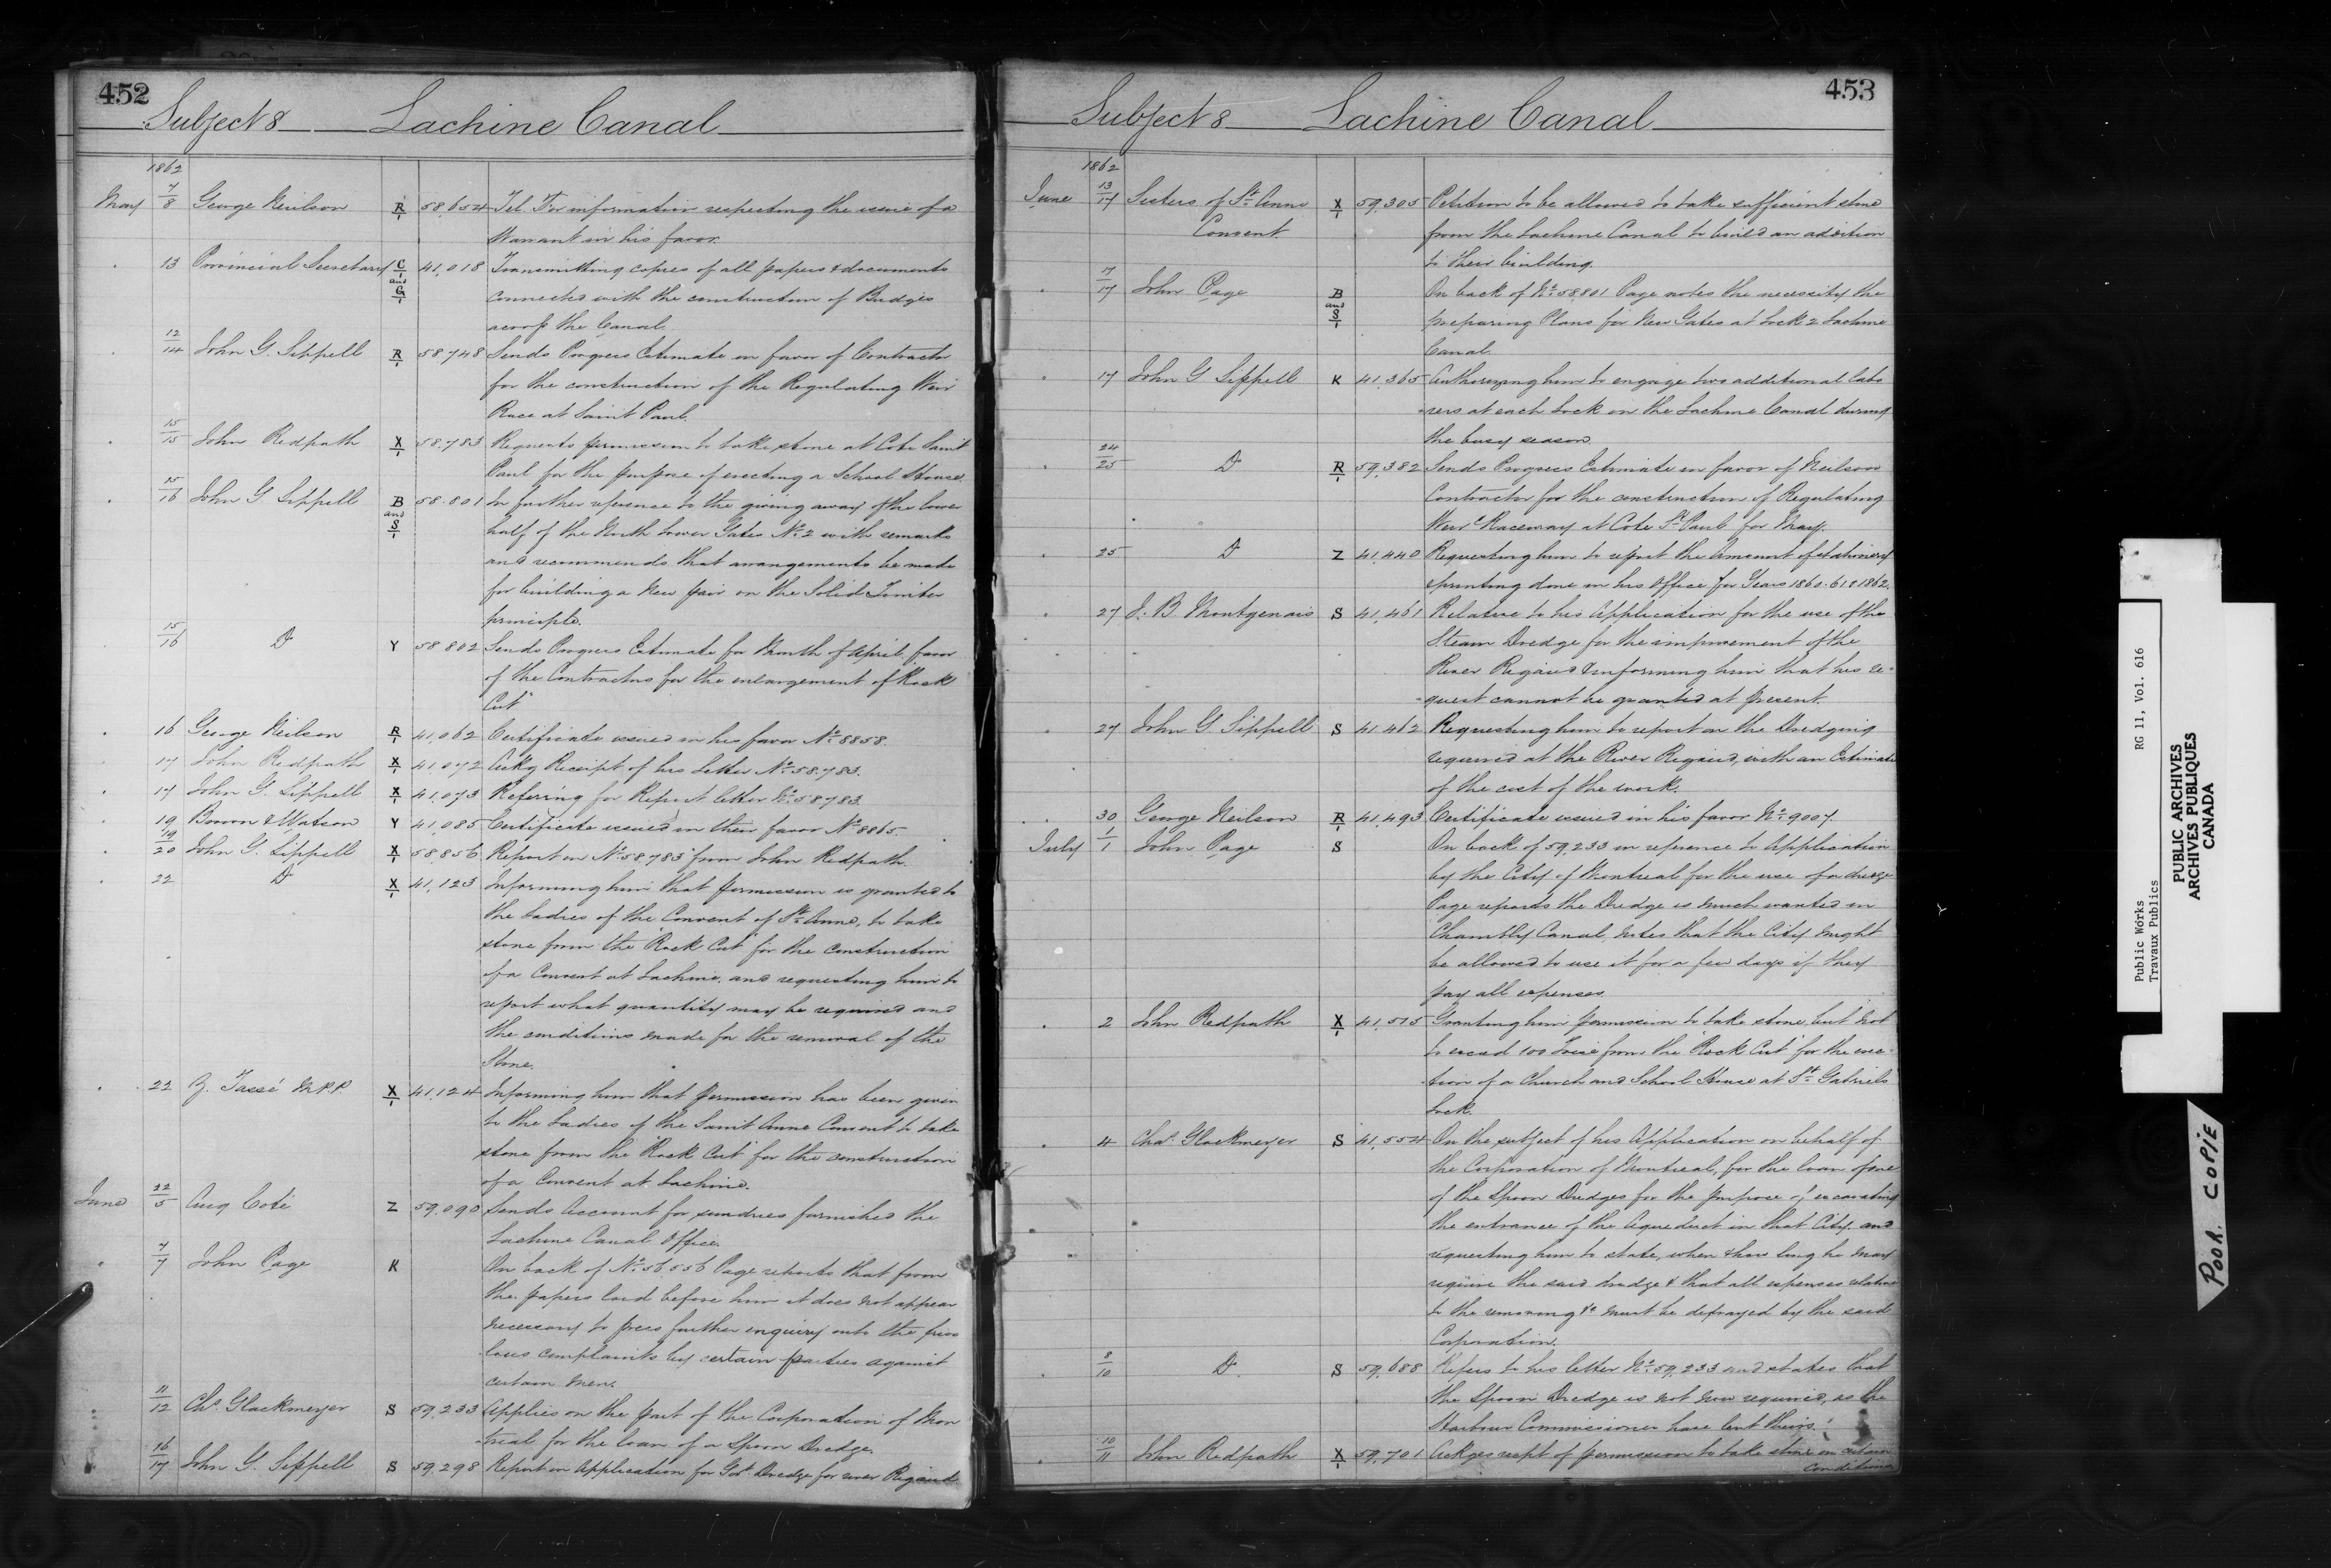 452
Subject 8 Lachine Canal
1862
May 7/8 George Neilson R/1 58,654 Tel. For information respecting the issue of a
Warrant in his favor.
13 Provincial Secretary C/1 and G/1 41,018 Transmitting copies of all papers & documents
connected with the construction of Bridges
across the Canal.
12/14 John G. Sippell R/1 58,748 Sends Progress Estimate in favor of Contractor
for the construction of the Regulating Weir
Race at Saint Paul.
15/15 John Redpath X/1 58,783 Requests permission to take stone at Cote Saint
Paul for the purpose of erecting a School House.
15/16 John G Sippell B and S/1 58.801 In further reference to the giving away of the lower
half of the North Lower Gates No. 2 with remarks
and recommends that arrangements be made
for building a New pair on the Solid Timber
principle.
15/16 Do Y 58.802 Sends Progress Estimate for Month of April, favor
of the Contractors for the enlargement of "Rock
Cut"
16 George Neilson R/1 41,062 Certificate issued in his favor No. 8858.
17 John Redpath X/1 41,072 Ackg Receipt of his Letter No. 58.783.
17 John G. Sippell X/1 41,073 Refering for Report letter No. 58783.
19 Bowon & Watson Y 41,085 Certificate issued in their favor No. 8865.
19/20 John G. Sippell X/1 58,856 Report on No. 58783 from John Redpath.
22 Do X/1 41,123 Informing him that permission is granted to
the Ladies of the Convent of St. Anne, to take
stone from the "Rock Cut" for the construction
of a Convent at Lachine, and requesting him to
report what quantity may be required and
the conditions made for the removal of the
Stone.
22 Z. Tassé M.P.P. X/1 41,124 Informing him that permission has been given
to the Ladies of the Saint Anne Convent to take
stone from the "Rock Cut" for the construction
of a Convent at Lachine.
June 22/5 Aug Coté Z 59,090 Sends Account for sundries furnished the
Lachine Canal Office.
7/7 John Page K On back of No. 56,556 Page reports that from
the papers laid before him it does not appear
necessary to press further enquiry into the frivo
lous complaints by certain parties against
certain men.
11/12 Chs. Glackmeyer S 59,233 Applies on the part of the Corporation of Mon
treal for the loan of a Spoon Dredge.
16/17 John G. Sippell S 59,298 Report on Application for Gov't Dredge for river Rigaud
453
Subject 8 Lachine Canal
1862
June 13/17 Sisters of St. Anne X/1 59,305 Petition to be allowed to take sufficient stone
Convent from the Lachine Canal to build an addition
to their building.
17/17 John Page B and S/1 On back of No. 58,801 Page notes the necessity the
preparing Plans for New Gates at Lock 2 Lachine
Canal.
17 John G Sippell K 41,365 Authorizing him to engage two additional labo
rers at each Lock on the Lachine Canal during
the busy season.
24/25 Do R/1 59,382 Sends Progress Estimate in favor of Neilson
Contractor for the construction of Regulating
Weir & Raceway at Cote St. Paul for May.
25 Do Z 41,440 Requesting him to report the Amount of stationery
& printing done in his Office for Years 1860. 61 & 1862.
27 J. B Montgenais S 41,461 Relative to his Application for the use of the
Steam Dredge for the improvement of the
River Rigaud & informing him that his re-
quest cannot be granted at present.
27 John G. Sippell S 41,462 Requesting him to report on the Dredging
required at the River Rigaud, with an Estimate
of the cost of the work.
30 George Neilson R/1 41,493 Certificate issued in his favor No. 9007.
July 1/1 John Page S On back of 59,233 in reference to Application
by the City of Montreal for the use of a dredge
Page reports the Dredge is much wanted in
Chambly Canal, notes that the City might
be allowed to use it for a few days if they
pay all expenses.
2 John Redpath X/1 41,515 Granting him permission to take stone, but not
to exceed 100 Toise from the "Rock Cut" for the erec-
tion of a Church and School House at St. Gabriels
Lock.
4 Chas. Glackmeyer S 41,554 On the subject of his Application on behalf of
the Corporation of Montreal, for the loan of one
of the Spoon Dredges for the purpose of excavating
the entrance of the Aqueduct in that City. and
requesting him to state, when & how long he may
require the said dredge & that all expenses relative
to the removing &c must be defrayed by the said
Corporation.
8/10 Do S 59,688 Refers to his letter No. 59,233 and states that
the Spoon Dredge is not now required, as the
Harbour Commissioners have lent theirs.
10/11 John Redpath X/1 59,701 Ackges recpt of permission to take stone on certain
conditions.
Public Works RG 11, Vol. 616
Travaux Publics
PUBLIC ARCHIVES
ARCHIVES PUBLIQUES
CANADA
POOR. COPIE